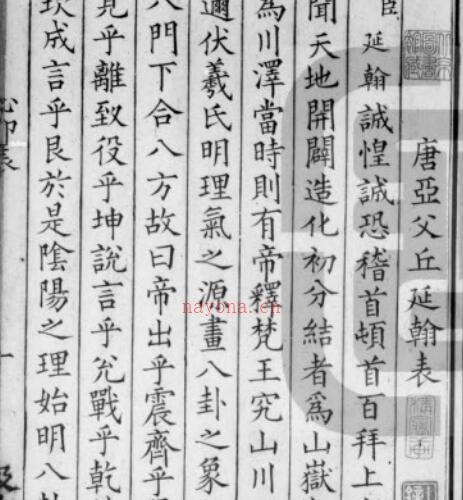 唐亞父丘延翰表
臣延翰誠惶誠恐稽首頓首百拜上
聞天地開闢造化初分結者為山嶽
為川澤當時則有帝釋梵王究山川
邇伏羲氏明理氣之源畫八卦之象
八門下合八方故曰帝出乎震齊乎
見乎離致役乎坤說言乎兌戰乎乾
坎成言乎艮於是陰陽之理始明八卦
nayona.cn